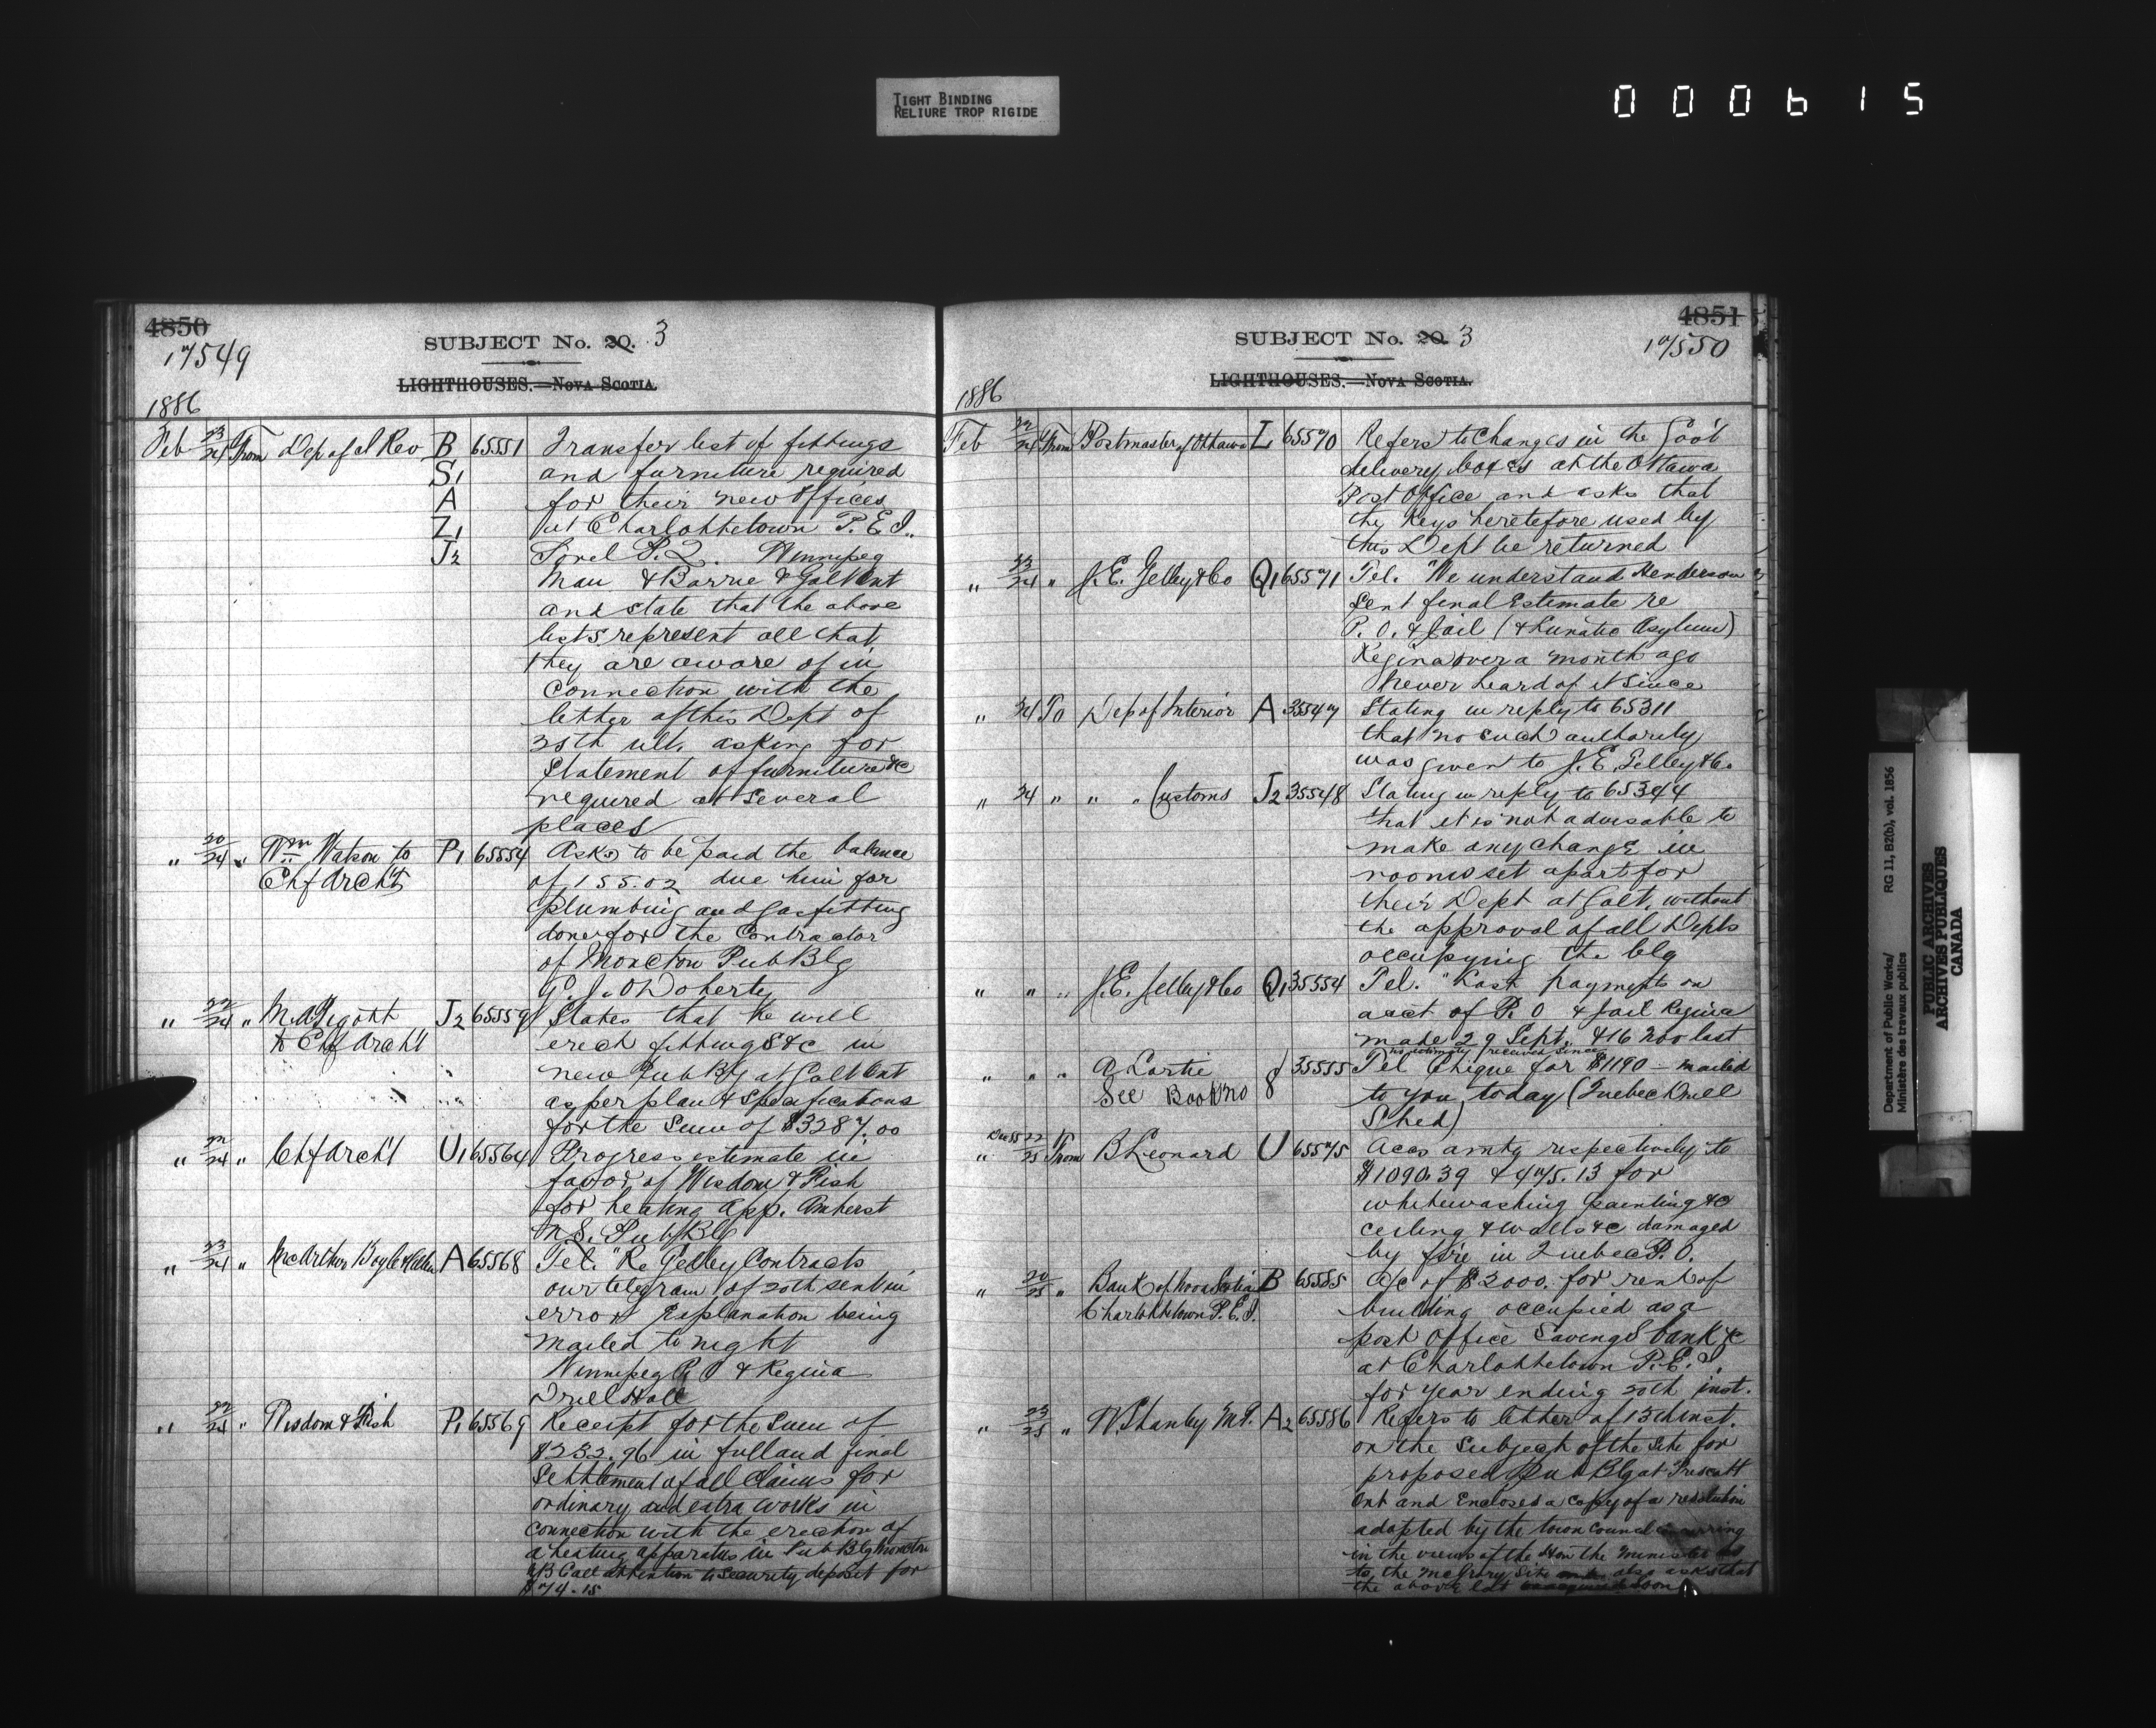 TIGHT BINDING
RELIURE TROP RIGIDE
000615
4850
17549
SUBJECT No. 20. 3
LIGHTHOUSES.—NOVA SCOTIA.
1886
Feb 23/24 From Dep of I Rev B 65551 Transfer list of fittings
S1 and furniture required
A for their new offices
Z1 at Charlottetown P.E.I.
J2 Sorel P.Q. Winnipeg
Man & Barrie & Galt Ont
and state that the above
lists represent all that
they are aware of in
connection with the
letter of this Dept of
25th ult. asking for
Statement of furniture &c
required at several
places
" 20/24 " Wm Watson to P1 65554 Asks to be paid the balance
Chf Arch't of 155.02 due him for
plumbing and Gasfitting
done for the Contractor
of Moncton Pub Blg
P. J. O'Doherty
" 22/24 " M.A. Pigott J2 65559 States that he will
to Chf Arch't erect fittings &c in
new Pub Blg at Galt Ont
as per plan & specifications
for the sum of $3287.00
" 22/24 " Chf Arch't U1 65564 Progress estimate in
favor of Wisdom & Fish
for heating app. Amherst
N.S. Pub Blg
" 23/24 " McArthur Boyle & A 65568 Tel. "Re Gelley Contracts
our telegram of 20th sent in
error explanation being
mailed to night
Winnipeg P.O & Regina
Drill Hall
" 22/25 " Wisdom & Fish P1 65569 Receipt for the Sum of
$232.96 in full and final
Settlement of all Claims for
ordinary and extra works in
connection with the erection of
a heating apparatus in Pub Blg Moncton
NB Call attention to Security deposit for
$74.15
4851
17550
SUBJECT No. 20. 3
LIGHTHOUSES.—NOVA SCOTIA.
1886
Feb 22/24 From Postmaster of Ottawa L 65570 Refers to Changes in the Gov't
delivery boxes at the Ottawa
Post Office and asks that
the Keys heretefore used by
this Dept be returned
" 23/24 " J.E. Gelley & Co Q1 65571 Tel. "We understand Henderson
Sent final Estimate re
P.O. & Jail (& Lunatic Asylum)
Regina over a month ago
Never heard of it Since
" 24 To Dep of Interior A 35547 Stating in reply to 65311
that no such authority
was given to J.E. Gelley & Co.
" 24 " " " Customs J2 35548 Stating in reply to 65344
that it is not advisable to
make any change in
rooms set apart for
their Dept at Galt. without
the approval of all Depts
occupying the blg
" " " J.E. Gelley & Co Q1 35554 Tel. "Last payments on
acct of P.O & Jail Regina
made 29 Sept. & 16 Nov last
no estimate received since
" " " A Lortie 8 35555 Tel Cheque for $1190 — mailed
See Book No to you today (Quebec Drill
Shed)
Dec 85 22
" 25 From B Leonard U 65575 Accs amtg respectively to
$1090.39 & 475.13 for
whitewashing painting &c
ceiling & walls &c damaged
by fire in Quebec P.O.
" 20/25 " Bank of Nova Scotia B 65585 A/c of $2000. for rent of
Charlottetown P.E.I. building occupied as a
post office Savings bank &c
at Charlottetown P.E.I.
for year ending 20th inst.
" 23/25 " W. Shanly M.P. A2 65586 Refers to letter of 13th inst.
on the Subject of the Site for
proposed Pub Blg at Prescott
Ont and Encloses a Copy of a resolution
adopted by the town council concurring
in the views of the Hon the Minister as
to the McCrory Site also asks that
the above lot
Department of Public Works/
Ministère des travaux publics
RG 11, B2(b), vol. 1856
PUBLIC ARCHIVES
ARCHIVES PUBLIQUES
CANADA